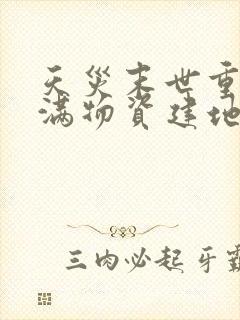 天災末世重
滿物資建地
三肉必起牙霸